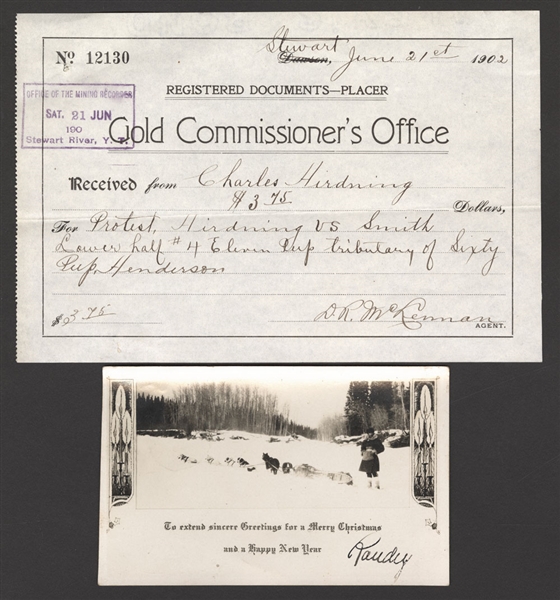 No 12130
Stewart
Dawson, June 21st 1902
REGISTERED DOCUMENTS—PLACER
OFFICE OF THE MINING RECORDER
SAT. 21 JUN
190
Stewart River, Y. T.
Gold Commissioner's Office
Received from Charles Hirdning
$3.75 Dollars,
For Protest, Hirdning vs Smith
Lower half #4 Eleven Pup tributary of Sixty
Pup, Henderson
$3.75 D.R. McLennan
AGENT.
To extend sincere Greetings for a Merry Christmas
and a Happy New Year